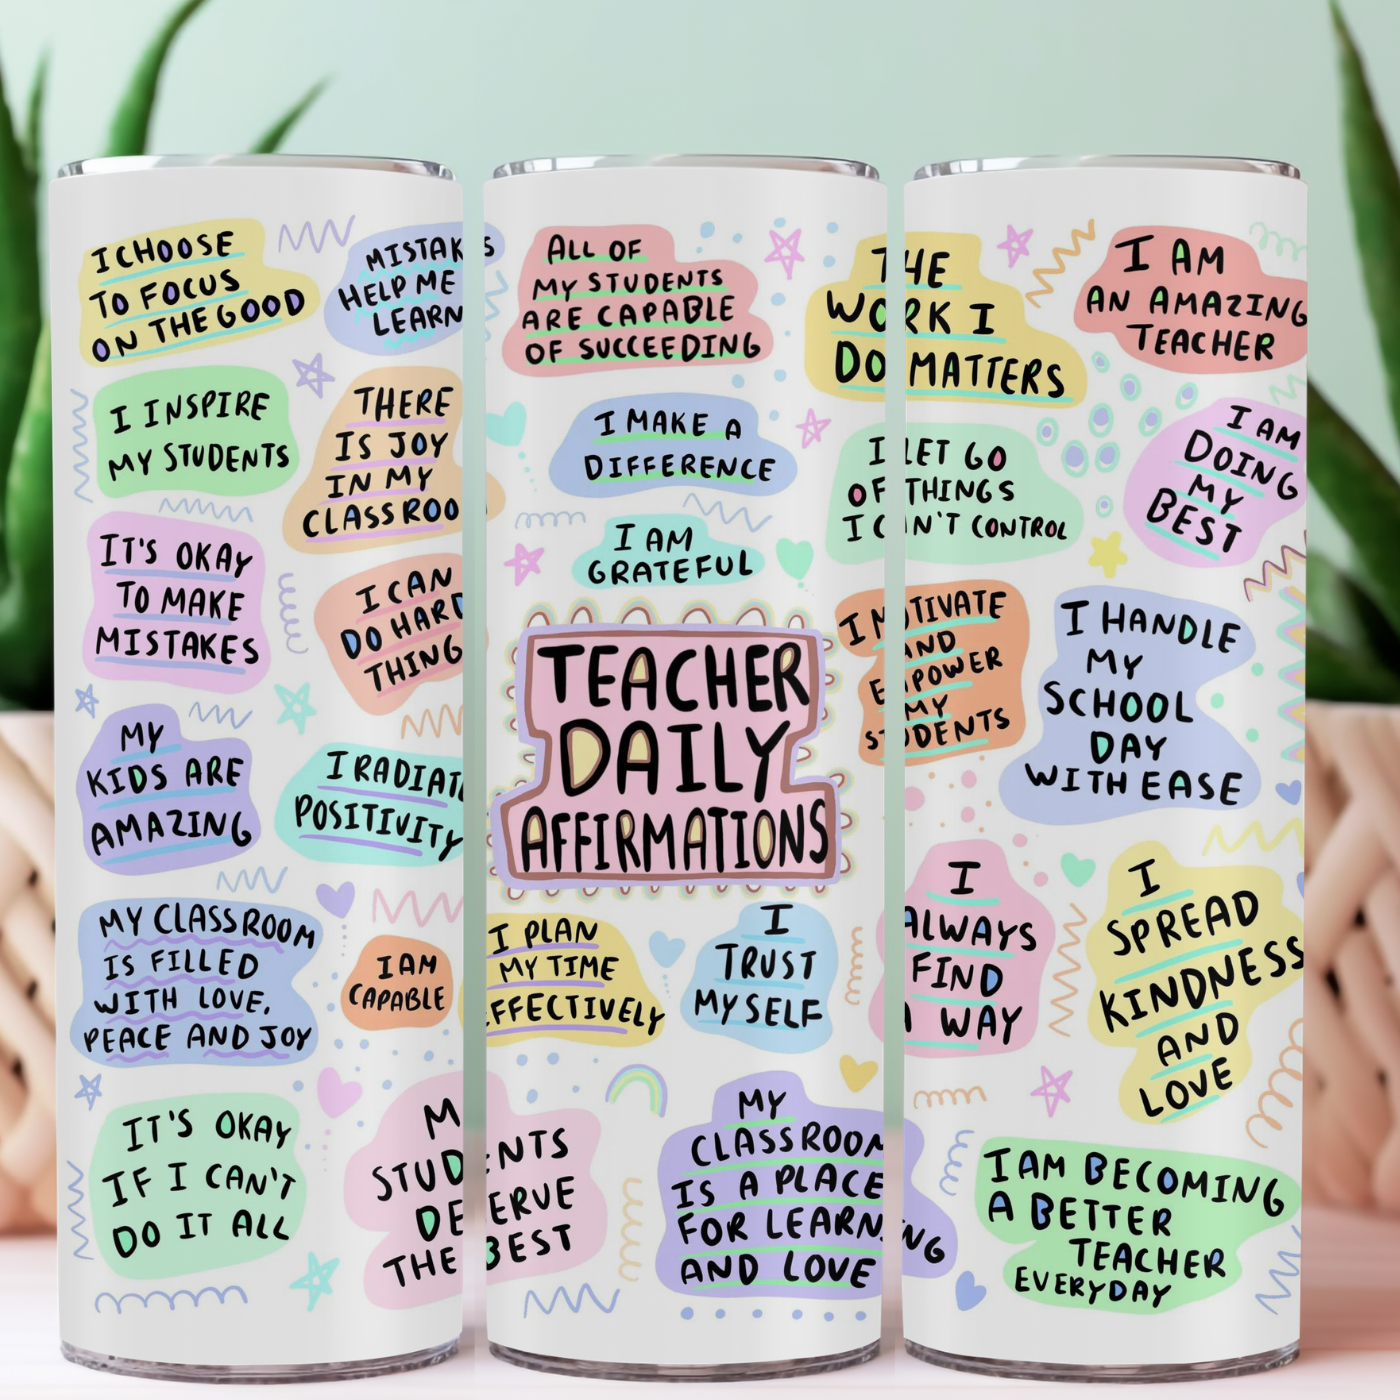 I CHOOSE
TO FOCUS
ON THE GOOD
MISTAKES
HELP ME
LEARN
I INSPIRE
MY STUDENTS
THERE
IS JOY
IN MY
CLASSROO
IT'S OKAY
TO MAKE
MISTAKES
I CAN
DO HARD
THING
MY
KIDS ARE
AMAZING
I RADIAT
POSITIVITY
MY CLASSROOM
IS FILLED
WITH LOVE,
PEACE AND JOY
I AM
CAPABLE
IT'S OKAY
IF I CAN'T
DO IT ALL
MY
STUDENTS
DESERVE
THE BEST
ALL OF
MY STUDENTS
ARE CAPABLE
OF SUCCEEDING
I MAKE A
DIFFERENCE
I AM
GRATEFUL
TEACHER
DAILY
AFFIRMATIONS
I PLAN
MY TIME
EFFECTIVELY
I
TRUST
MYSELF
MY
CLASSROOM
IS A PLACE
FOR LEARNING
AND LOVE
THE
WORK I
DO MATTERS
I LET GO
OF THINGS
I CAN'T CONTROL
I MOTIVATE
AND
EMPOWER
MY
STUDENTS
I AM
AN AMAZING
TEACHER
I AM
DOING
MY
BEST
I HANDLE
MY
SCHOOL
DAY
WITH EASE
I
ALWAYS
FIND
A WAY
I
SPREAD
KINDNESS
AND
LOVE
I AM BECOMING
A BETTER
TEACHER
EVERYDAY